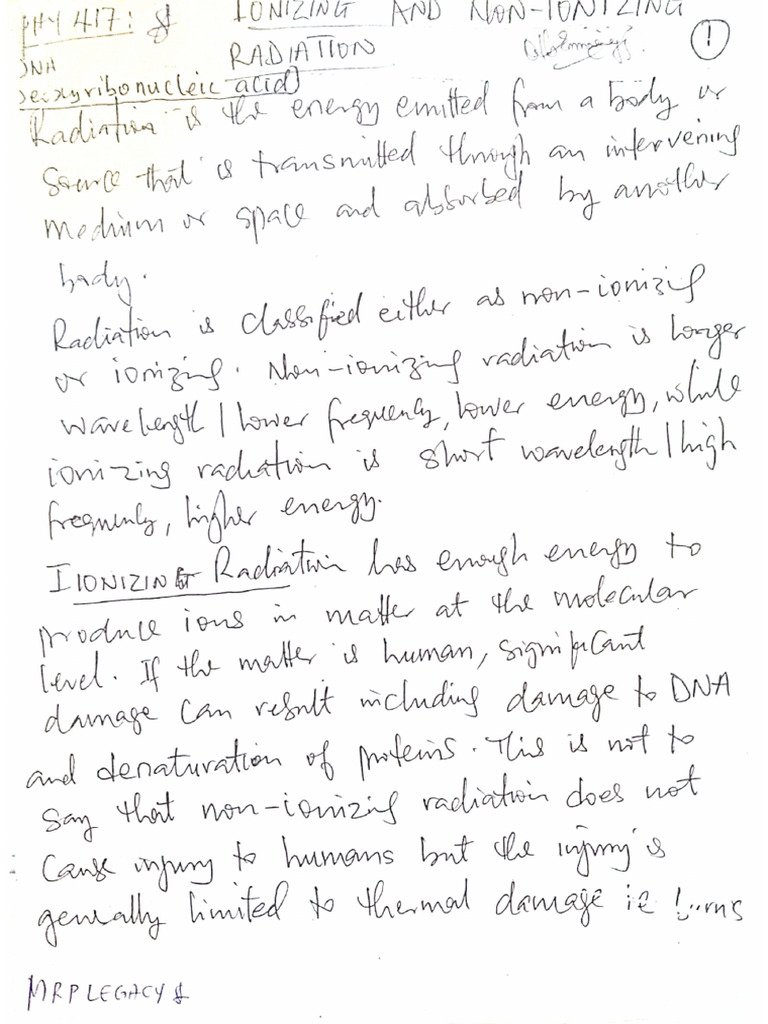 PHY 417: IONIZING AND NON-IONIZING
RADIATION
①
DNA
Deoxyribonucleic acid)
Radiation is the energy emitted from a body or
source that is transmitted through an intervening
medium or space and absorbed by another
body.
Radiation is classified either as non-ionizing
or ionizing. Non-ionizing radiation is longer
wavelength / lower frequency, lower energy, while
ionizing radiation is short wavelength / high
frequency, higher energy.
IIONIZING Radiation has enough energy to
produce ions in matter at the molecular
level. If the matter is human, significant
damage can result including damage to DNA
and denaturation of proteins. This is not to
say that non-ionizing radiation does not
cause injury to humans but the injury is
generally limited to thermal damage ie burns
MRPLEGACY